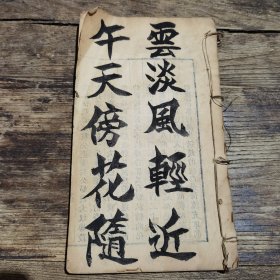 雲淡風輕近
午天傍花隨